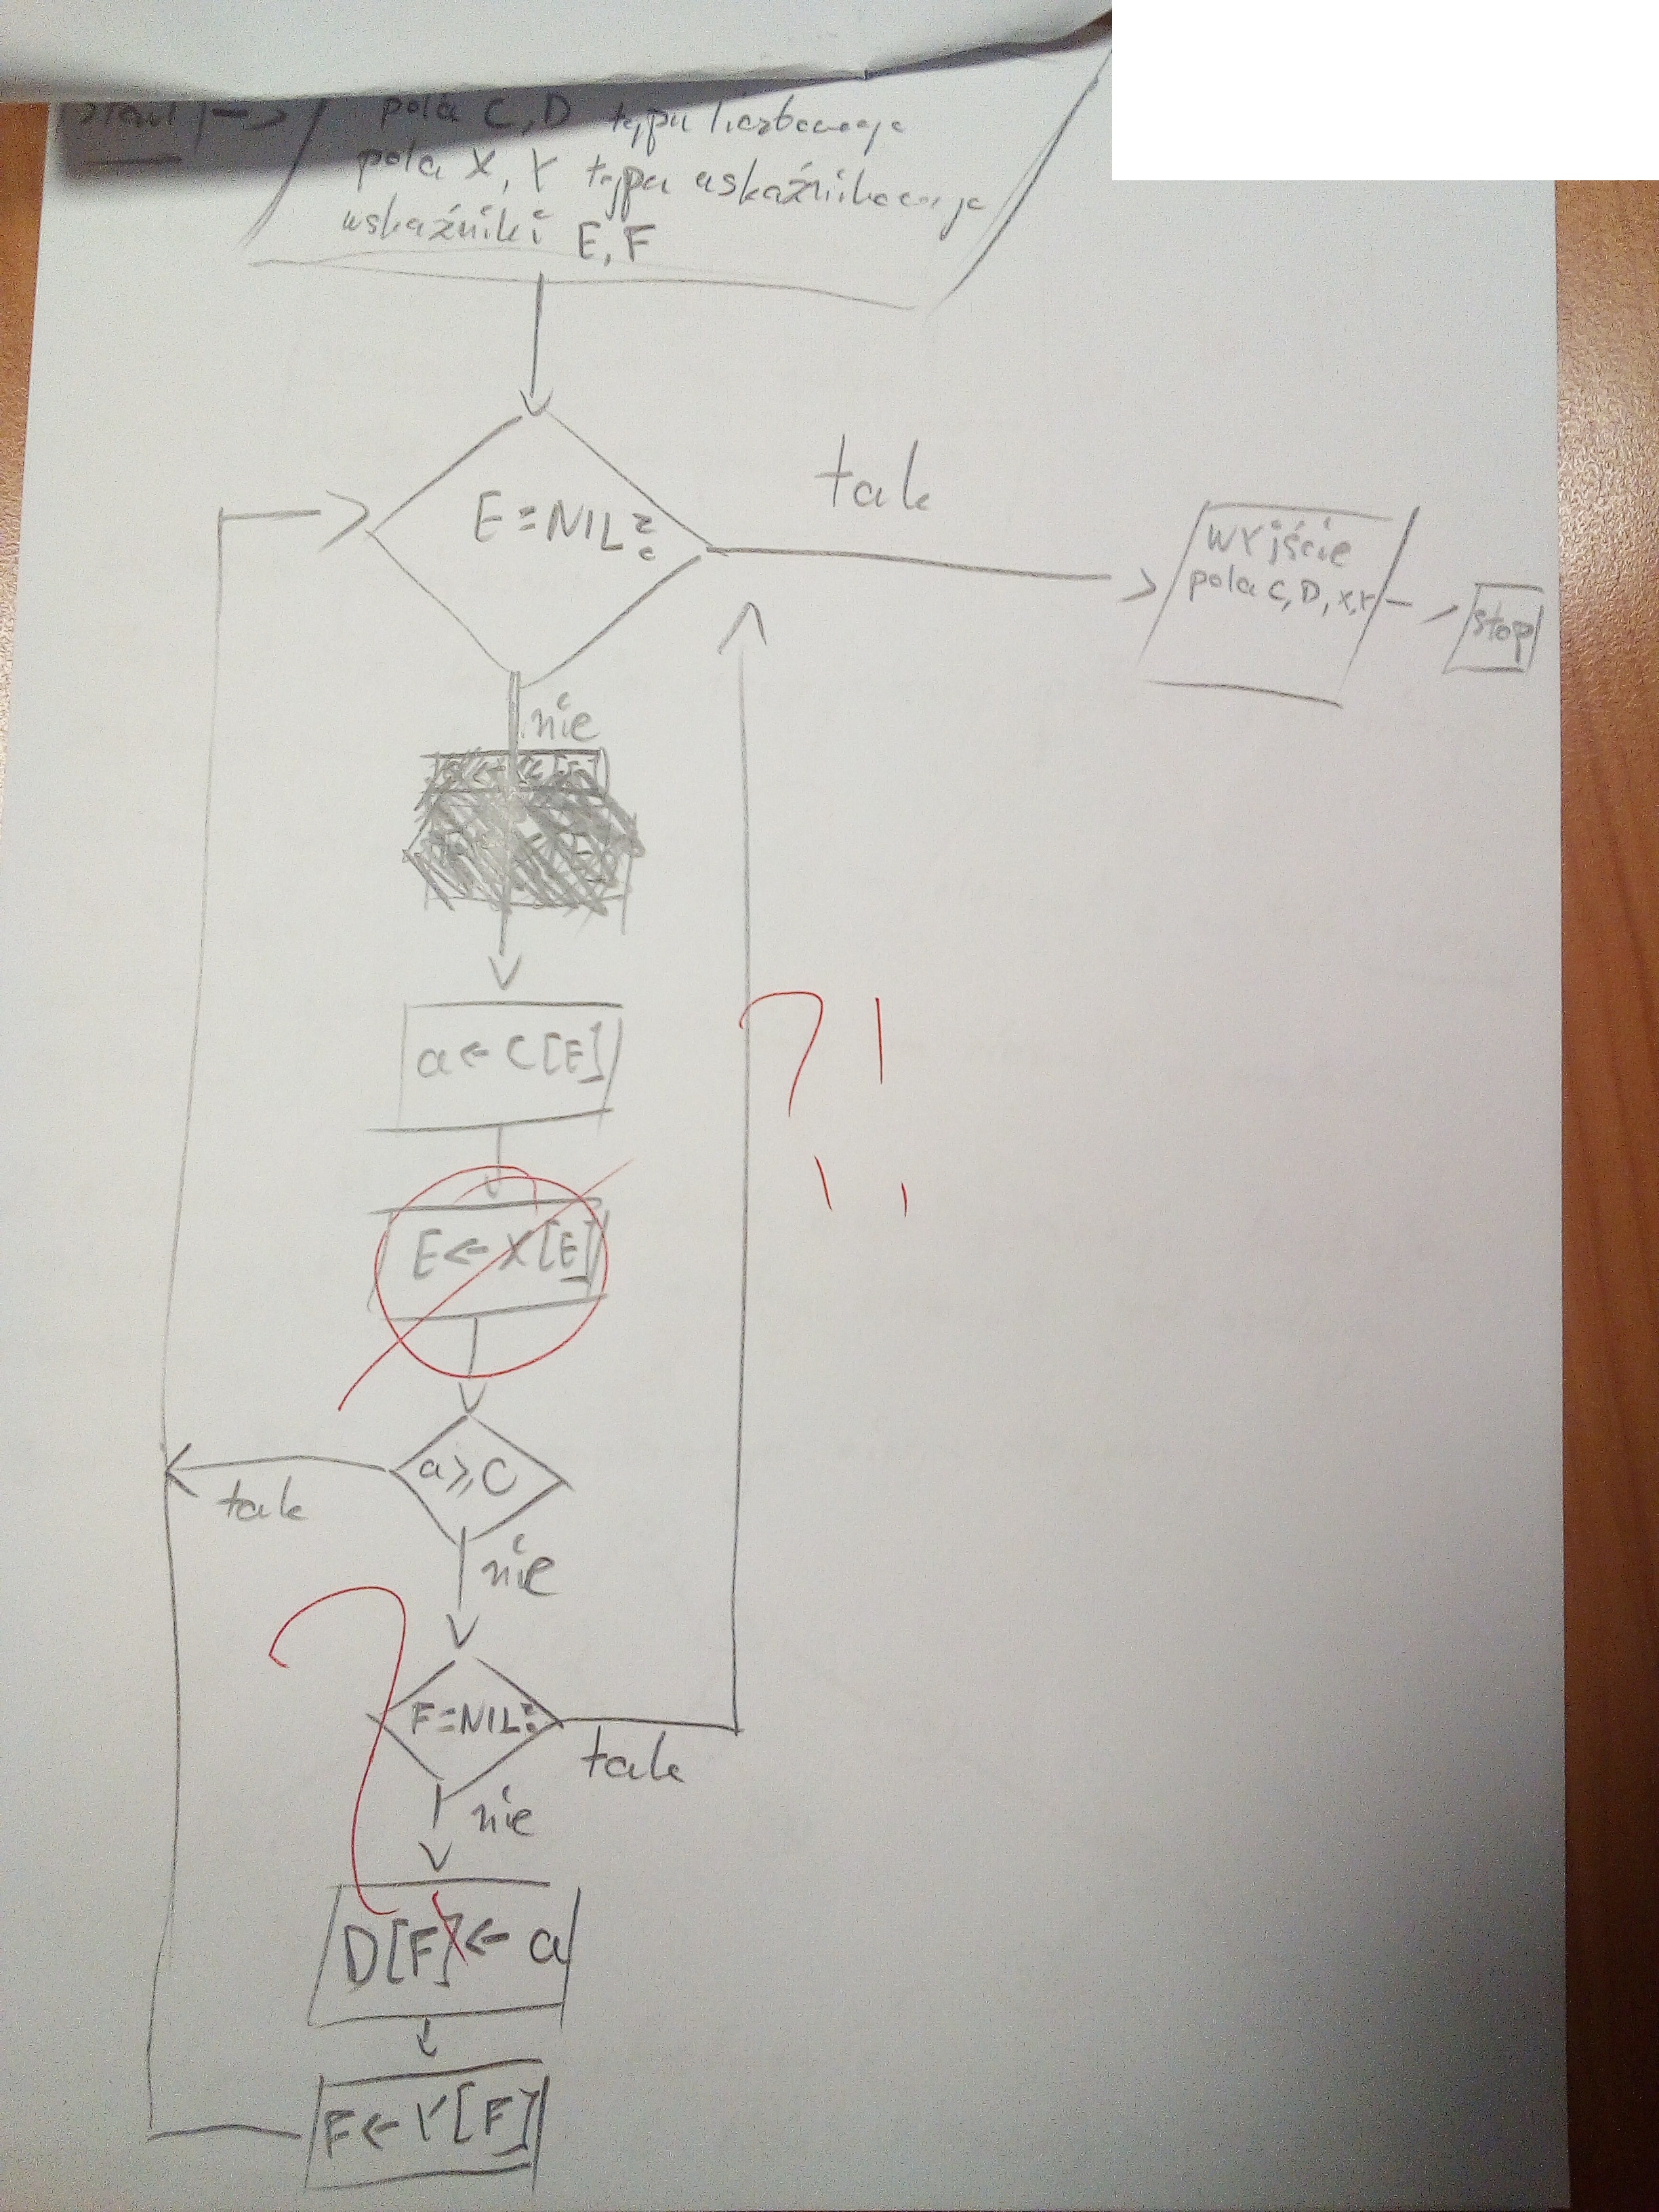 start
pola C, D typu liczbowego
pola X, Y typu wskaźnikowego
wskaźniki E, F
E = NIL?
tak
wyjście
pola C, D, X, Y
stop
nie
a ← C[E]
?!
E ← X[E]
a ≥ C
tak
nie
?
F = NIL?
tak
nie
D[F] ← a
F ← Y[F]